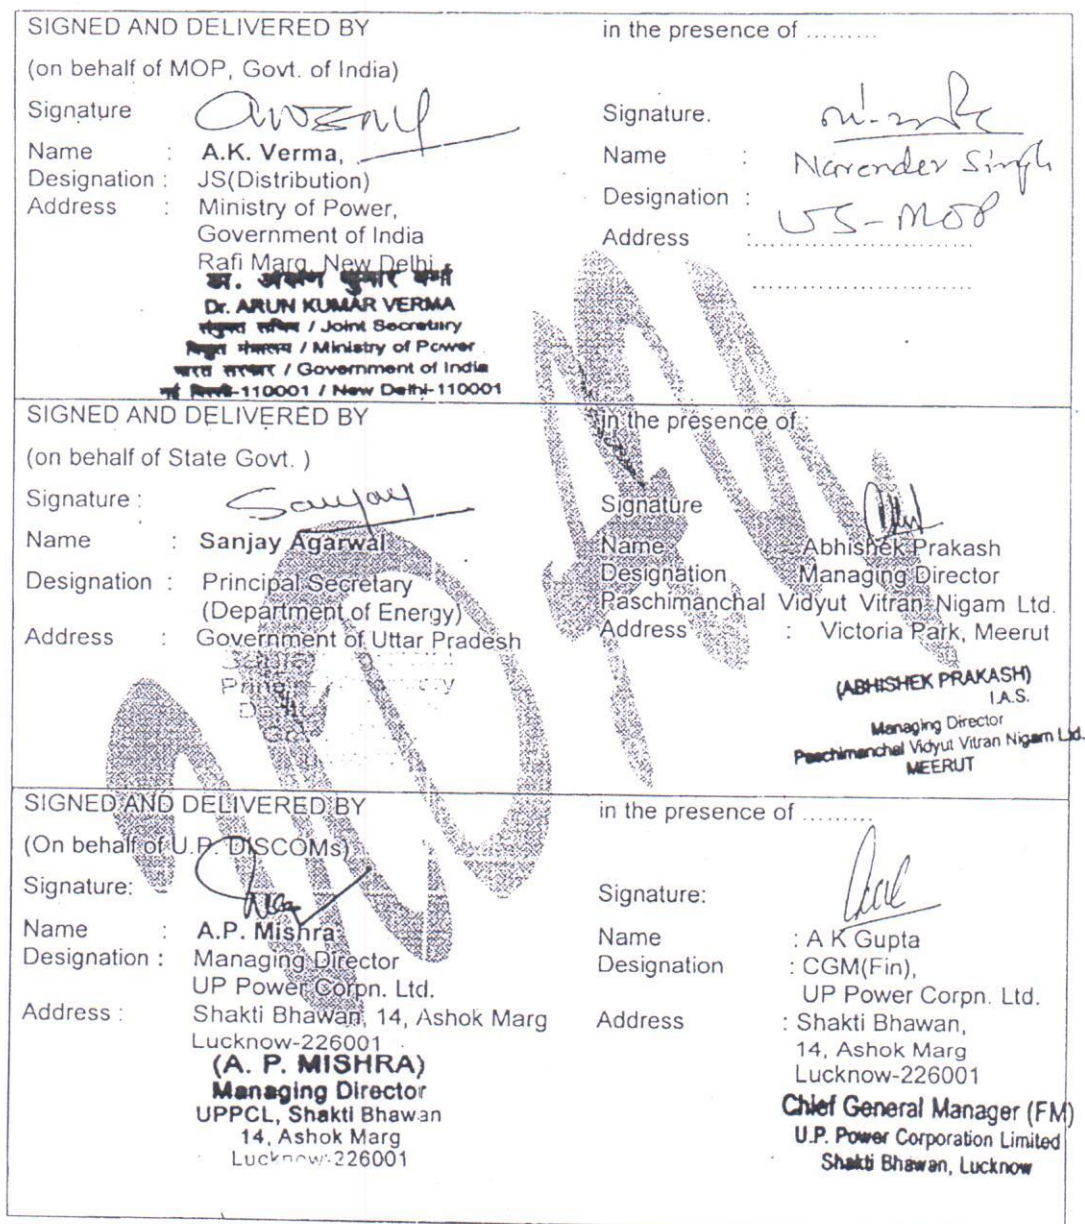 SIGNED AND DELIVERED BY
(on behalf of MOP, Govt. of India)
Signature
Name : A.K. Verma,
Designation : JS(Distribution)
Address : Ministry of Power,
Government of India
Rafi Marg, New Delhi
डा. अरूण कुमार वर्मा
Dr. ARUN KUMAR VERMA
संयुक्त सचिव / Joint Secretary
विद्युत मंत्रालय / Ministry of Power
भारत सरकार / Government of India
नई दिल्ली-110001 / New Delhi-110001
in the presence of .........
Signature.
Name : Narender Singh
Designation : US-MOP
Address :............................
............................
SIGNED AND DELIVERED BY
(on behalf of State Govt. )
Signature : Sanjay
Name : Sanjay Agarwal
Designation : Principal Secretary
(Department of Energy)
Address : Government of Uttar Pradesh
in the presence of
Signature
Name : Abhishek Prakash
Designation Managing Director
Paschimanchal Vidyut Vitran Nigam Ltd.
Address : Victoria Park, Meerut
(ABHISHEK PRAKASH)
I.A.S.
Managing Director
Paschimanchal Vidyut Vitran Nigam Ltd.
MEERUT
SIGNED AND DELIVERED BY
(On behalf of U.P. DISCOMs)
Signature:
Name : A.P. Mishra
Designation : Managing Director
UP Power Corpn. Ltd.
Address : Shakti Bhawan, 14, Ashok Marg
Lucknow-226001
(A. P. MISHRA)
Managing Director
UPPCL, Shakti Bhawan
14, Ashok Marg
Lucknow-226001
in the presence of .........
Signature:
Name : A K Gupta
Designation : CGM(Fin),
UP Power Corpn. Ltd.
Address : Shakti Bhawan,
14, Ashok Marg
Lucknow-226001
Chief General Manager (FM)
U.P. Power Corporation Limited
Shakti Bhawan, Lucknow